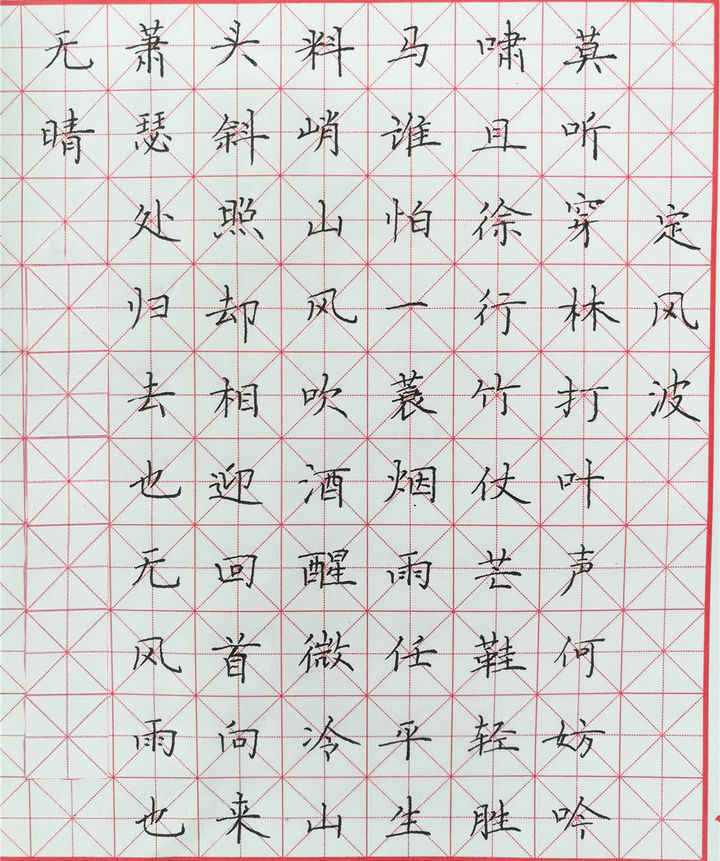 定风波
莫听穿林打叶声何妨吟
啸且徐行竹仗芒鞋轻胜
马谁怕一蓑烟雨任平生
料峭山风吹酒醒微冷山
头斜照却相迎回首向来
萧瑟处归去也无风雨也
无晴